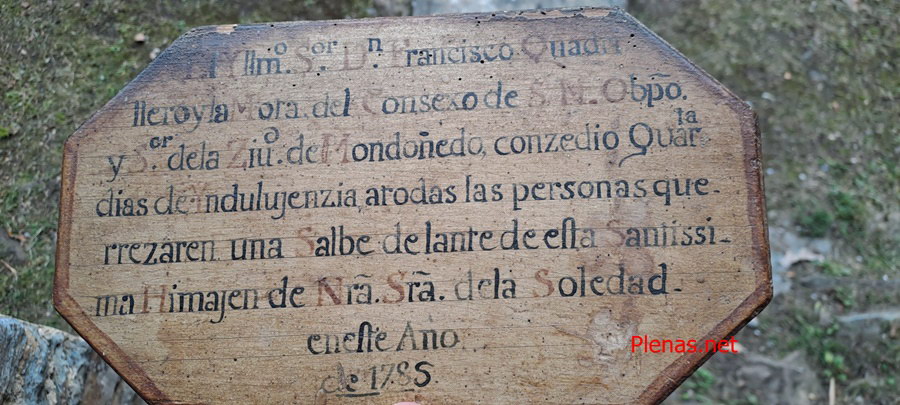 El Illmº. Sºr. Dn. Francisco Quadri
lleroylaMora.del Consexo de S. M. Obpõ.
y Ser. dela Ziuº. de Mondoñedo, conzedio Quarta
dias de Yndulujenzia, atodas las personas que-
rrezaren una Salbe delante de esta Santissi-
ma Himajen de Nrã. Srã. dela Soledad.
eneste Año
de 1785.
Plenas.net